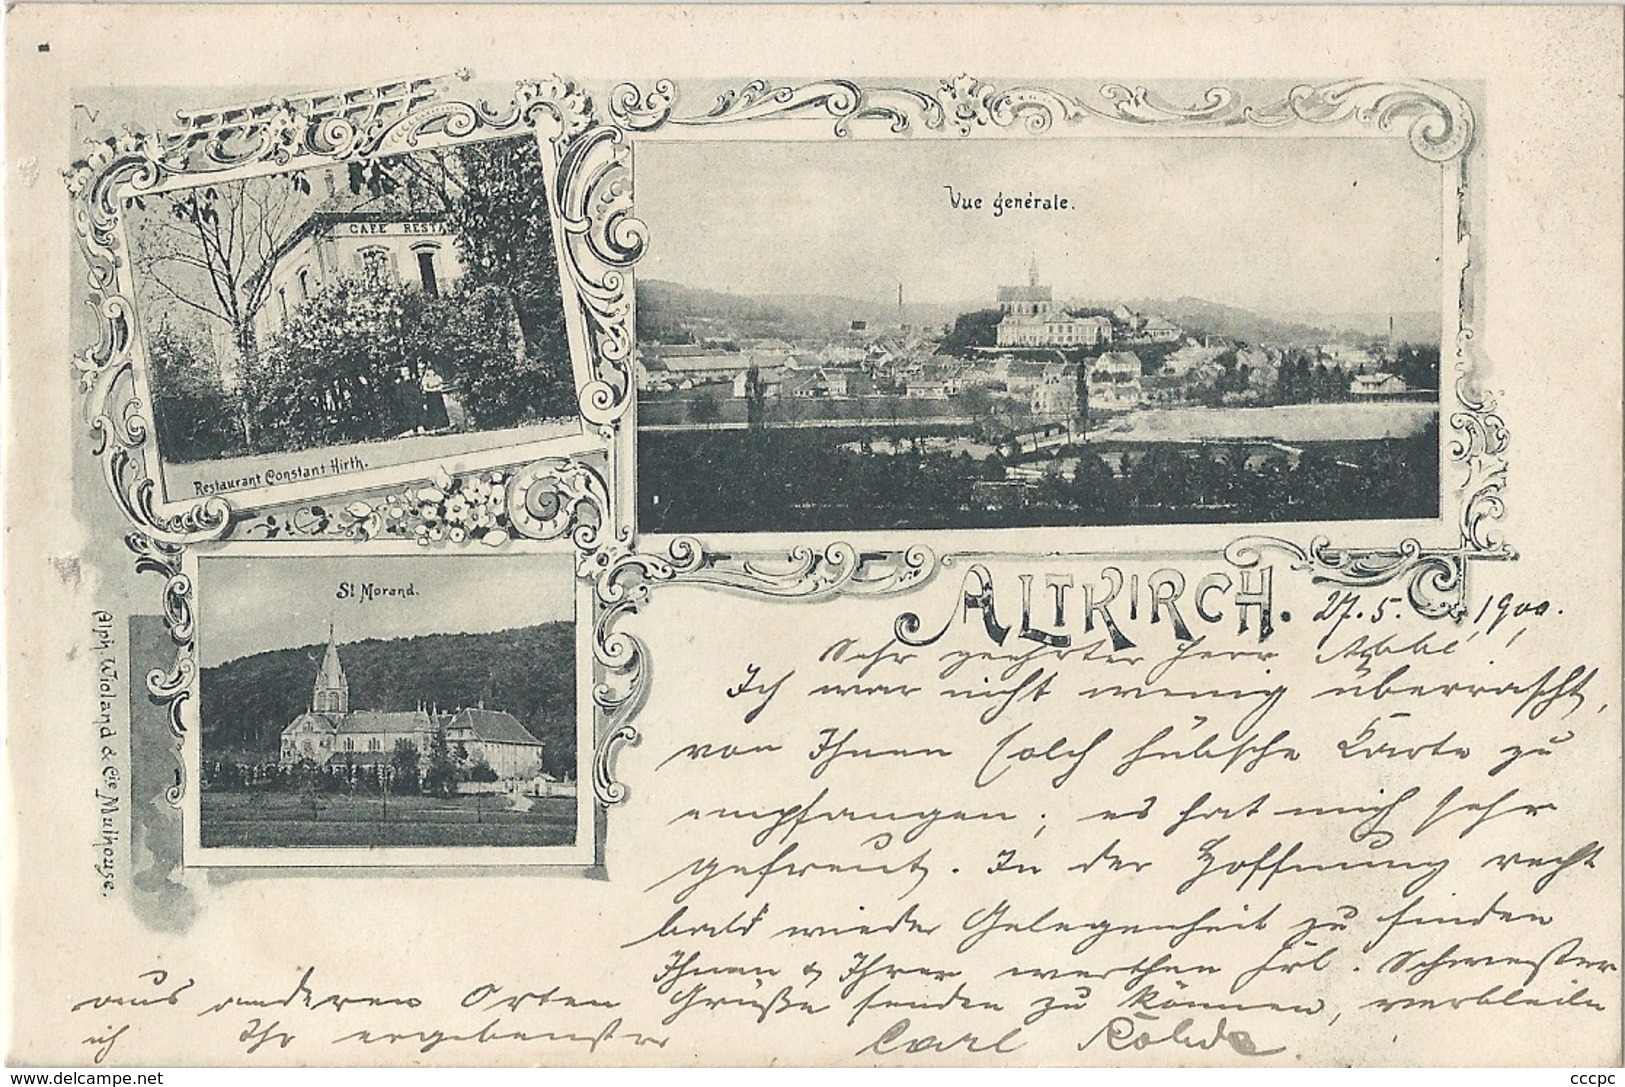 CAFÉ RESTA
Vue générale.
Restaurant Constant Hirth.
St Morand.
ALTKIRCH.
27.5.1900.
Sehr geehrter Herr Abbé,
Ich war nicht wenig überrascht,
von Ihnen solch hübsche Karte zu
empfangen; es hat mich sehr
gefreut. In der Hoffnung recht
bald wieder Gelegenheit zu finden
Ihnen & Ihrer werthen Frl. Schwester
aus anderen Orten Grüße senden zu können, verbleibe
ich Ihr ergebenster
Carl
Alph. Wioland & Cie Mulhouse.
cccpc